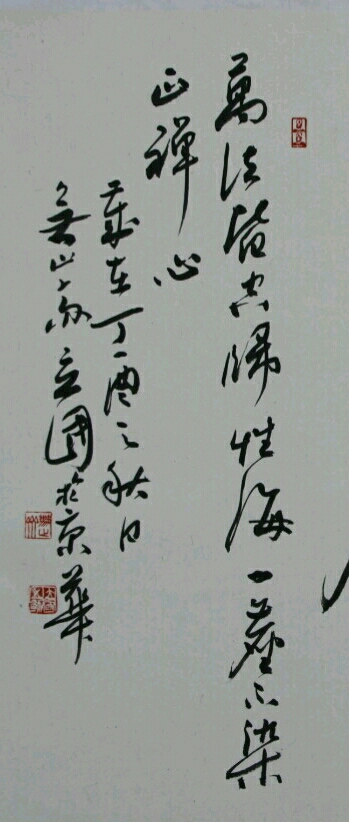 萬法皆空歸性海一塵不染
正禪心
歲在丁酉之秋日
立國於京華